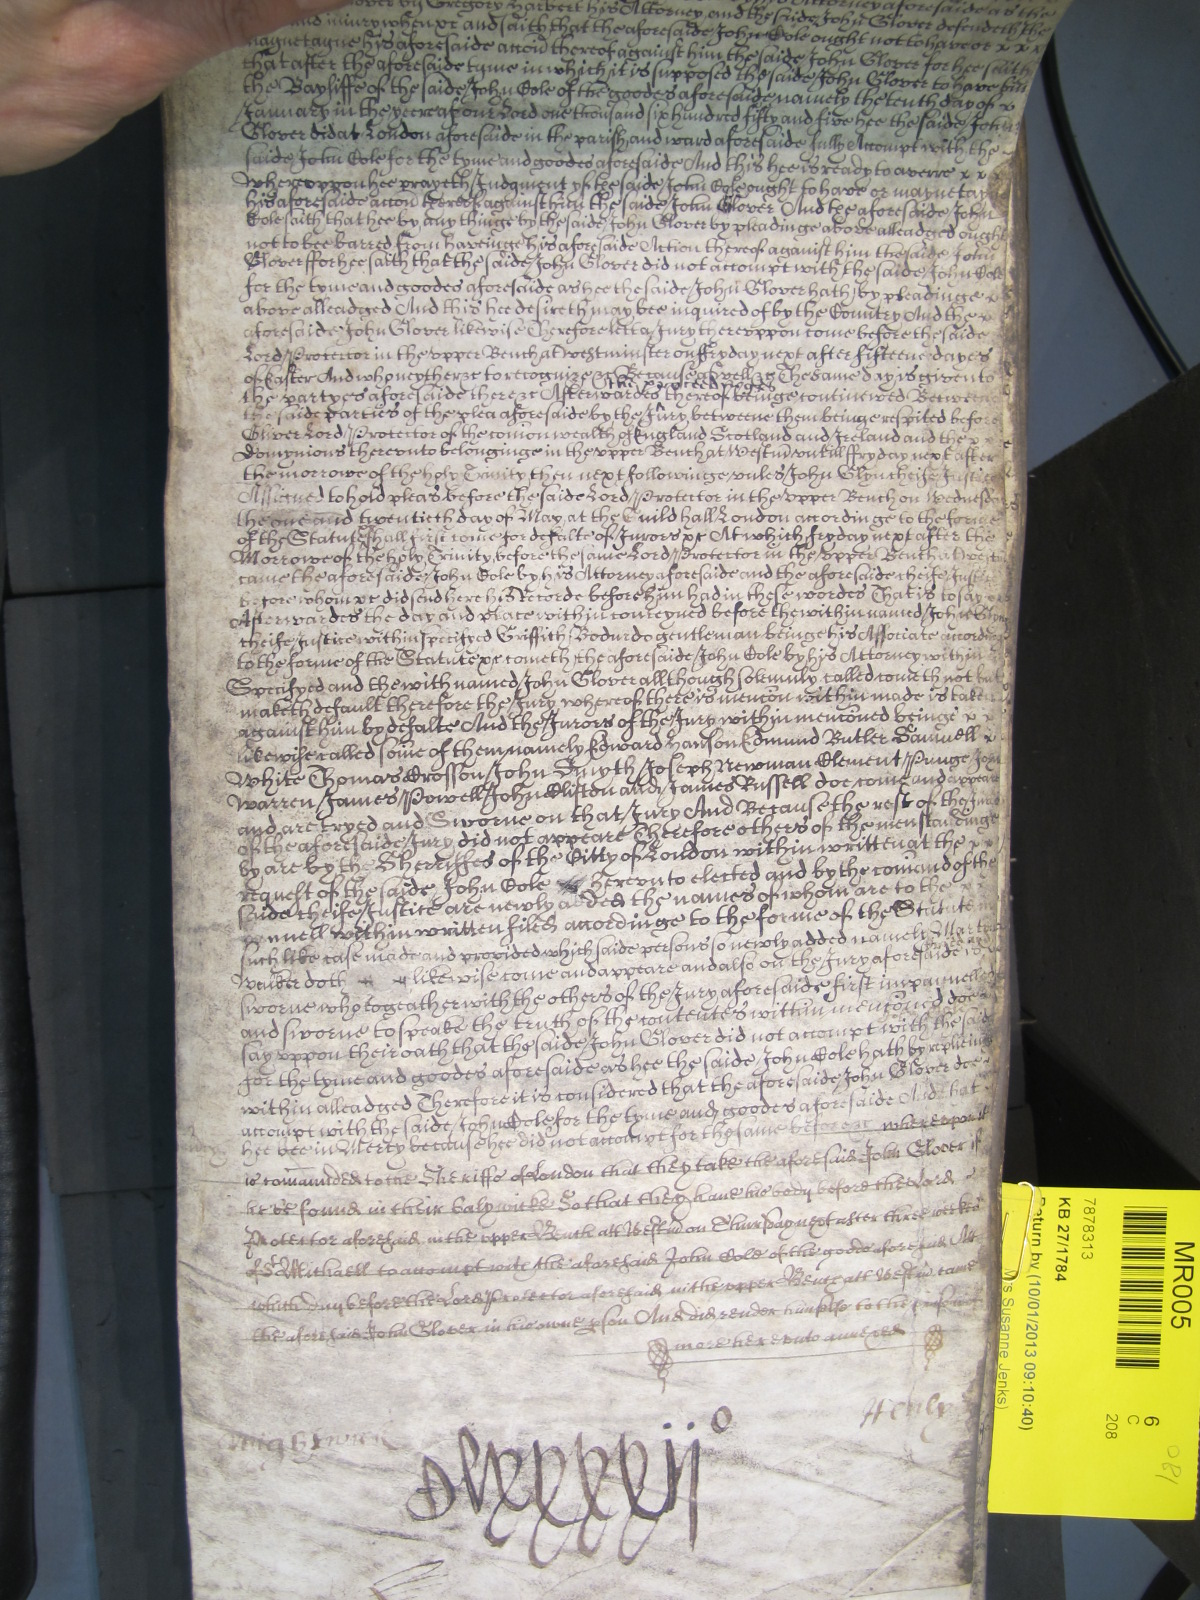 Glover by Gregory Harbert his Attorney and the saide John Glover defendeth the
and injury when &c and saith that the aforesaide John Cole ought not to have or x x x
maynetayne his aforesaide accon thereof against him the saide John Glover for hee saith
that after the aforesaide tyme in which it is supposed the saide John Glover to have bin
the Bayliffe of the saide John Cole of the goodes aforesaide namely the tenth day of x
January in the yeere of our Lord one thousand six hundred fifty and five hee the saide John
Glover did at London aforesaide in the parish and ward aforesaide fully Accompt with the
saide John Cole for the tyme and goodes aforesaide And this hee is ready to averre x x x
Whereuppon hee prayeth Judgment yf the saide John Cole ought to have or maynetayne
his aforesaide accon thereof against him the saide John Glover And the aforesaide John
Cole saith that hee by any thinge by the saide John Glover by pleadinge above alleadged ought
not to bee barred from haveinge his aforesaide Action thereof against him the saide John
Glover ffor hee saith that the saide John Glover did not accompt with the saide John Cole
for the tyme and goodes aforesaide as hee the saide John Glover hath by pleadinge x
above alleadged And this hee desireth may bee inquired of by the Country And the x
aforesaide John Glover likewise Therefore lett a Jury thereuppon come before the saide
Lord Protector in the upper Bench at Westminster on ffryday next after fifteene dayes
of Easter And who neyther &c to recognize &c Because aswell &c The same day is given to
the partyes aforesaide there &c Afterwardes the proceedinges thereof beinge continewed Betweene
the saide parties of the plea aforesaide by the Jury betweene them beinge respited before
Oliver Lord Protector of the comon wealth of England Scotland and Ireland and the x x
dominions thereunto belonginge in the upper Bench at Westmr untill ffryday next after
the morrowe of the holy Trinity then next followinge unles John Glyn cheife Justice
Assigned to hold pleas before the saide Lord Protector in the upper Bench on Wednesday
the one and twentieth day of May at the Guildhall London accordinge to the forme
of the Statute shall first come for defalte of Jurors &c At which ffryday next after the
Morrowe of the holy Trinity before the same Lord Protector in the upper Bench at Westmr
came the aforesaide John Cole by his Attorney aforesaide and the aforesaide cheife Justice
before whom &c did send here his Recorde before him had in these wordes That is to say
Afterwardes the day and place within conteyned before the within named John Glyn
cheife Justice within specifyed Griffith Bodurdo gentleman beinge his Associate accordinge
to the forme of the Statute &c cometh the aforesaide John Cole by his Attorney within
Specifyed and the with named John Glover allthough solemnly called cometh not but
maketh default therefore the Jury whereof there is mencon within made is taken
against him by defalte And the Jurors of the Jury within mencioned beinge x x
likewise called some of them namely Edward Hanson Edmund Butler Samuell x
White Thomas Crosson John Smyth Joseph Newman Clement Punge John
Warren James Powell John Clifton and James Russell doe come and appeare
and are tryed and Sworne on that Jury And Because the rest of the Jurors
of the aforesaide Jury did not appeare Therefore others of the men standinge
by are by the Sherriffes of the Citty of London within written at the x x
request of the saide John Cole hereunto elected and by the comand of the
saide cheife Justice are newly added the names of whom are to the x
pannell within written filed accordinge to the forme of the Statute in
such like case made and provided which saide persons so newly added namely
doth likewise come and appeare and also on the Jury aforesaide is
sworne who togeather with the others of the Jury aforesaide first impannelled
and sworne to speake the truth of the contentes within mencioned doe
say uppon their oath that the saide John Glover did not accompt with the saide
for the tyme and goodes aforesaide as hee the saide John Cole hath by
within alleadged Therefore it is considered that the aforesaide John Glover doe
accompt with the saide John Cole for the tyme and goodes aforesaide And that
hee bee in Mercy because hee did not accompt for the same before &c whereupon it
is comaunded to the Sheriffe of London that they take the aforesaid John Glover if
he be found in their balywicke So that they have his body before the Lord
Protector aforesaid in the upper Bench att Westmr on Thursday next after three weekes
of St Michaell to accompt with the aforesaid John Cole of the goods aforesaid Att
which day before the Lord Protector aforesaid in the upper Bench att Westmr came
the aforesaid John Glover in his owne pson And did render himselfe to the
more hereunto annexed
Henly
Clxxxxij o
MR005
6
C
208
7878313
KB 27/1784
Return by (10/01/2013 09:10:40)
Mrs Susanne Jenks)
180